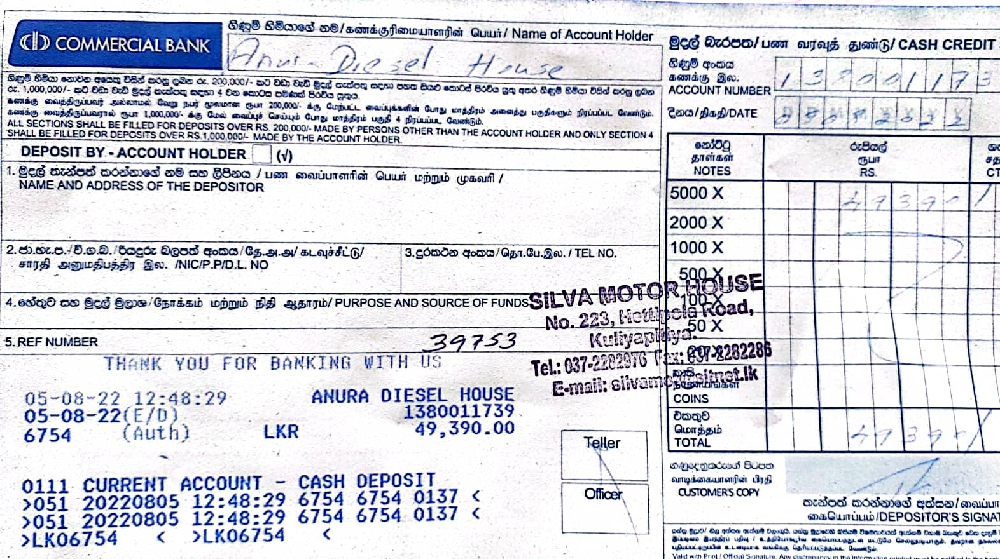 COMMERCIAL BANK
ගිණුම් හිමියාගේ නම/கணக்குரிமையாளரின் பெயர்/ Name of Account Holder
Anura Diesel House
ALL SECTIONS SHALL BE FILLED FOR DEPOSITS OVER RS. 200,000/- MADE BY PERSONS OTHER THAN THE ACCOUNT HOLDER AND ONLY SECTION 4
SHALL BE FILLED FOR DEPOSITS OVER RS.1,000,000/- MADE BY THE ACCOUNT HOLDER.
DEPOSIT BY - ACCOUNT HOLDER (√)
1. මුදල් තැන්පත් කරන්නාගේ නම සහ ලිපිනය / பண வைப்பாளரின் பெயர் மற்றும் முகவரி /
NAME AND ADDRESS OF THE DEPOSITOR
2. ජා.හැ.ප./වි.ග.බ./රියදුරු බලපත් අංකය/தே.அ.அ/கடவுச்சீட்டு/
சாரதி அனுமதிபத்திர இல. /NIC/P.P/D.L. NO
3. දුරකථන අංකය/தொ.பே.இல. / TEL NO.
4. හේතුව සහ මුදල් මූලාශ්‍ර/நோக்கம் மற்றும் நிதி ஆதாரம்/ PURPOSE AND SOURCE OF FUNDS
5. REF NUMBER 39753
SILVA MOTOR HOUSE
No. 223, Hettipola Road,
Kuliyapitiya.
Tel.: 037-2282976 Fax: 037-2282286
THANK YOU FOR BANKING WITH US
05-08-22 12:48:29 ANURA DIESEL HOUSE
05-08-22(E/D) 1380011739
6754 (Auth) LKR 49,390.00
0111 CURRENT ACCOUNT - CASH DEPOSIT
>051 20220805 12:48:29 6754 6754 0137 <
>051 20220805 12:48:29 6754 6754 0137 <
>LK06754 < >LK06754 <
Teller
Officer
මුදල් බැරපත/பண வரவுத் துண்டு/ CASH CREDIT
ගිණුම් අංකය
கணக்கு இல.
ACCOUNT NUMBER 138001173
දිනය/திகதி/DATE
නෝට්ටු
தாள்கள்
NOTES
රුපියල්
ரூபா
RS.
5000 X 49390/
2000 X
1000 X
500 X
100 X
50 X
COINS
එකතුව
மொத்தம்
TOTAL 49390/
ගනුදෙනුකරුගේ පිටපත
வாடிக்கையாளரின் பிரதி
CUSTOMER'S COPY
තැන්පත් කරන්නාගේ අත්සන/வைப்பா
கையொப்பம்/DEPOSITOR'S SIGNA